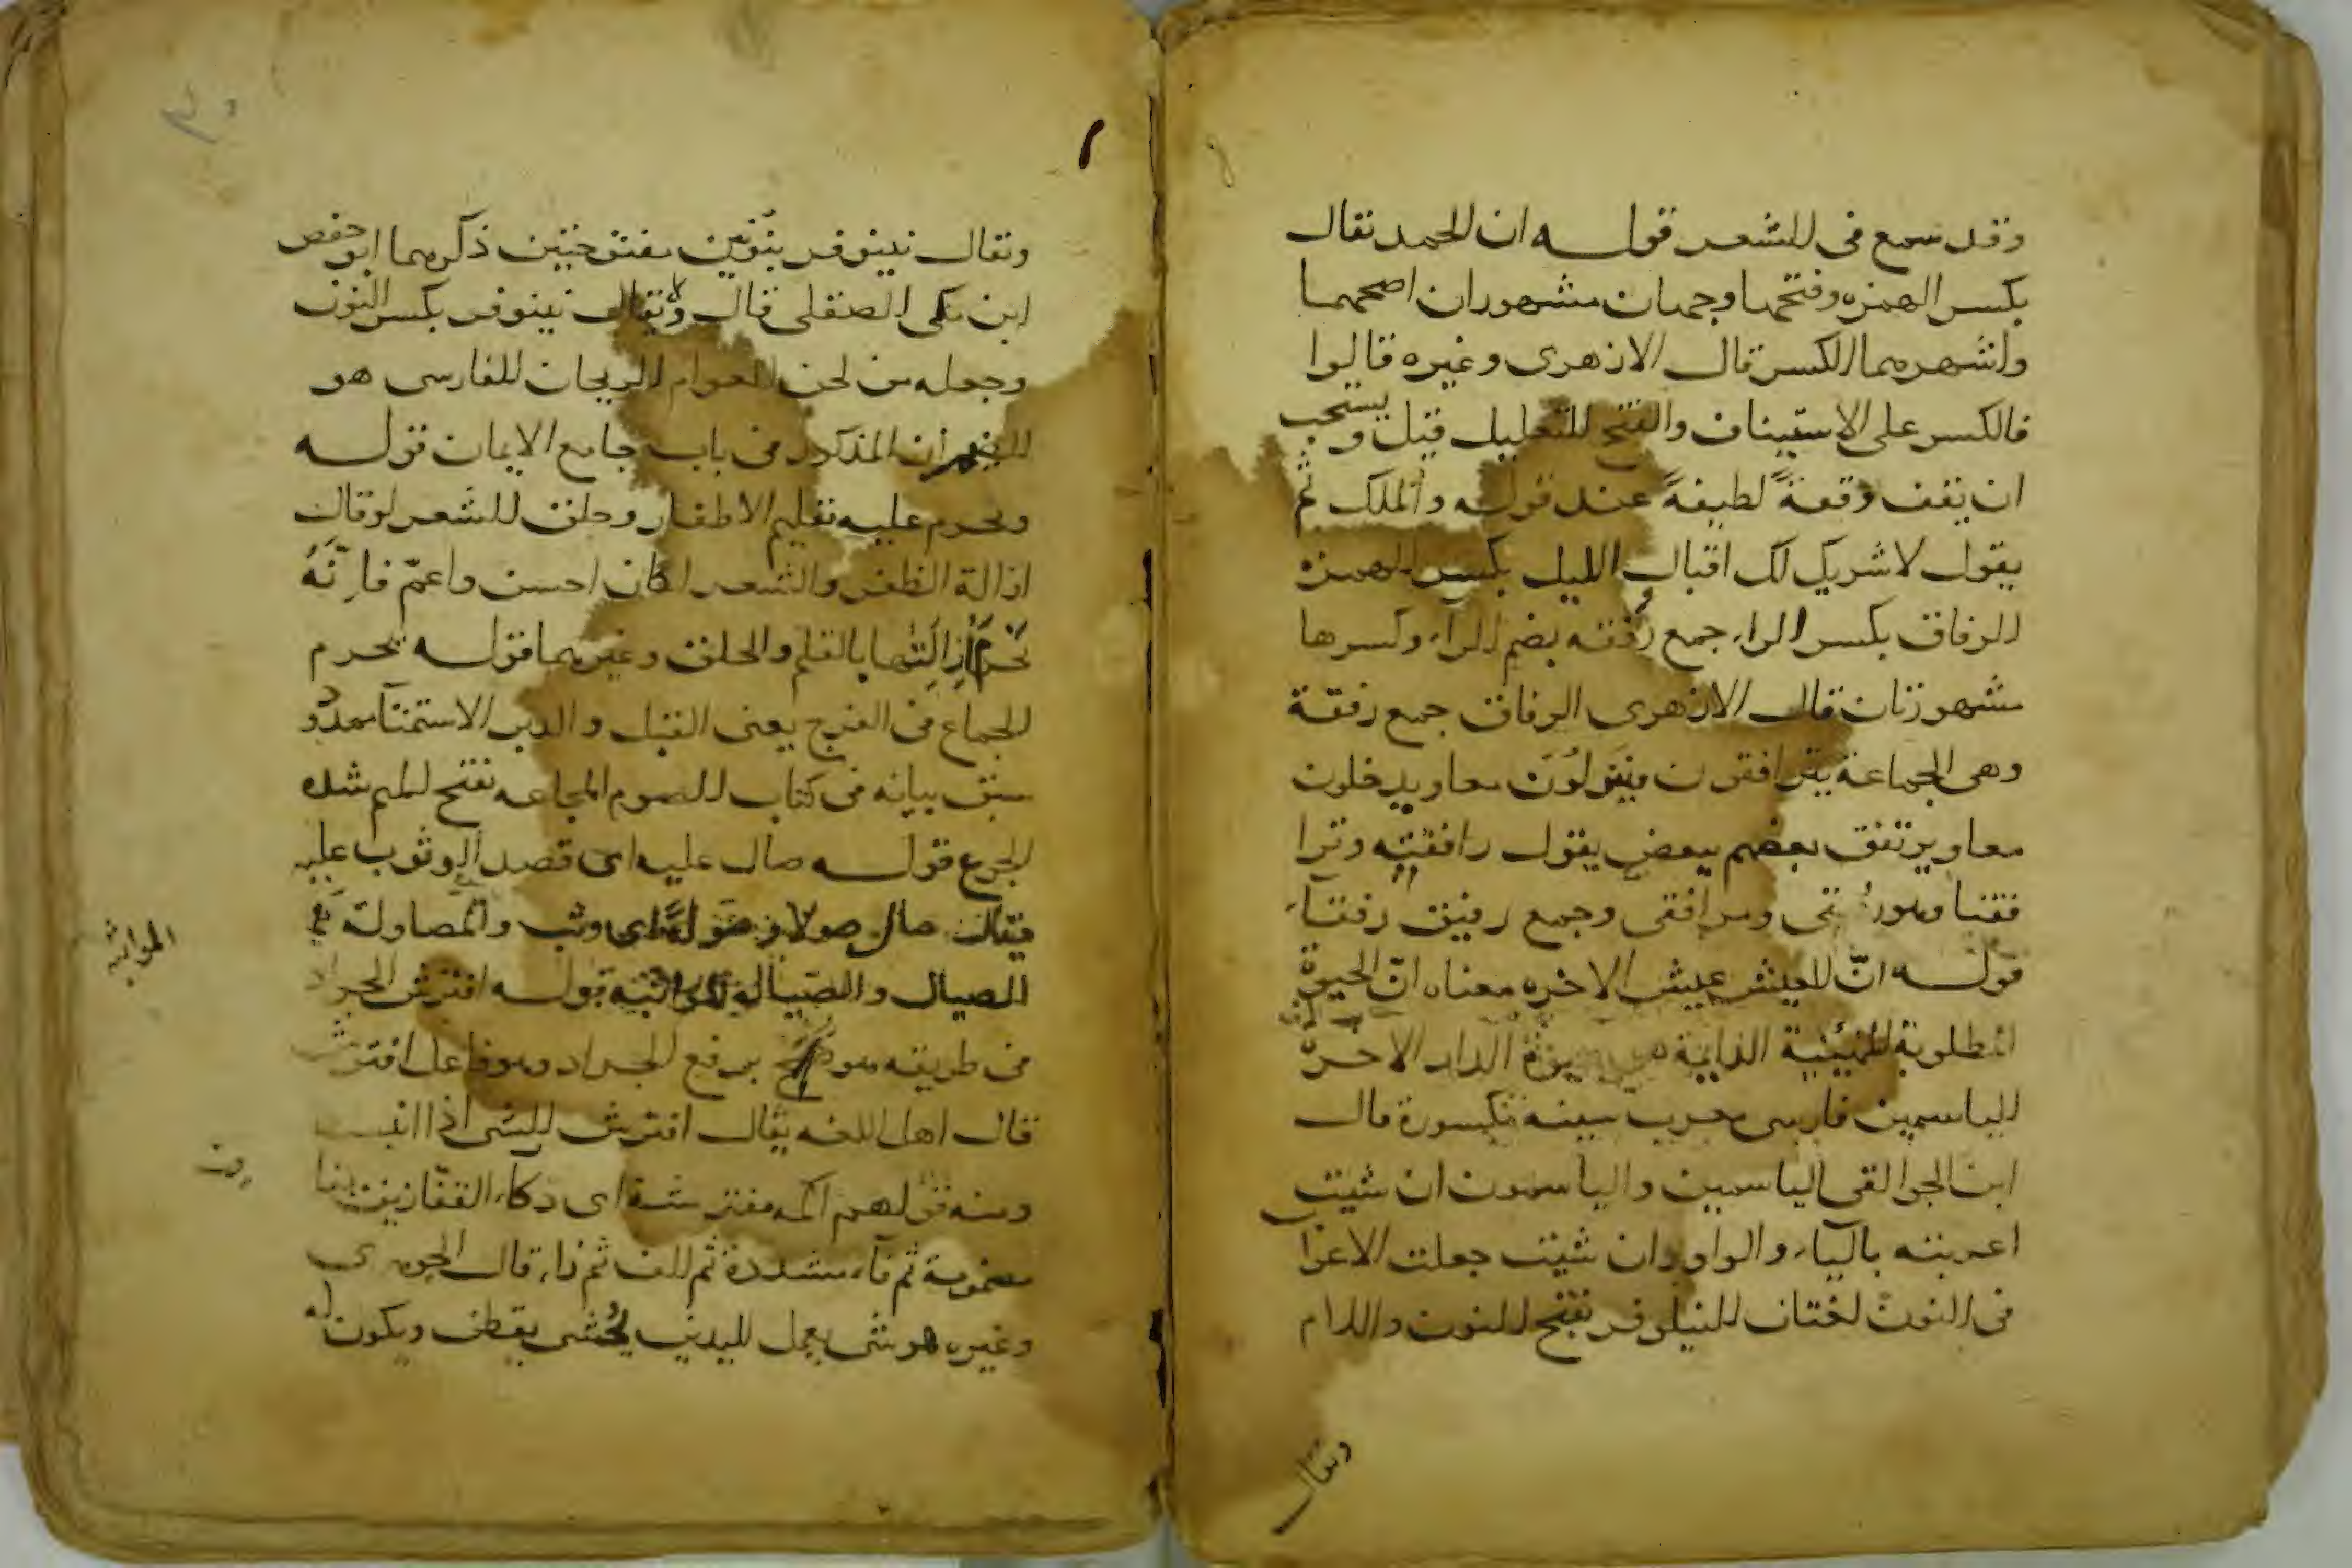 وقد سمع في الشعر قوله ان الحمد يقال
بكسر الهمزه وفتحها وجهان مشهوران اصحهما
واشهرهما الكسر قال الازهري وغيره قالوا
فالكسر على الاستيناف والفتح للتعليل قيل ويستحب
ان يقف وقفةً لطيفةً عند قوله والملك ثم
يقول لا شريك لك اقبال الليل بكسر الهمزة
الرفاق بكسر الراء جمع رُفقه بضم الراء وكسرها
مشهورتان قال الازهري الرفاق جمع رفقة
وهي الجماعة يترافقون فينزلُون معا ويدخلون
معا ويرتفق بعضهم ببعض يقول رافقته وترا
فقنا وهو رفيقي ومرافقي وجمع رفيق رفقاء
قوله انّ العيش عيش الاخره معناه انّ الحيوة
المطلوبة الهنيئة الدايمة هي حيوة الدار الاخرة
الياسمين فارسي معرب سينه مكسورة قال
ابن الجواليقي الياسمين والياسمون ان شيت
اعربته بالياء والواو وان شيت جعلت الاعراب
في النون لغتان النيلوفر بفتح النون واللام
ويقال
ويقال نينوفر بنُونين مفتوحتين ذكرهما ابو حفص
ابن مكي الصقلي قال ولا يقال نينوفر بكسر النون
وجعله من لحن العوام الريحان الفارسي هو
الضيمران المذكور في باب جامع الايمان قوله
ويحرم عليه تقليم الاظفار وحلق الشعر لو قال
ازالة الظفر والشعر لكان احسن واعمّ فاِنّهُ
تَحْرُم اِزالَتها بالقلم والحلق وغيرهما قوله يحرم
الجماع في الفرج يعني القبل والدبر الاستمنآ ممدود
سبق بيانه في كتاب الصوم المجاعه بفتح الميم شده
الجوع قوله صال عليه اي قصد الوثوب عليه
يقال صال صولا وصَولةً اي وثب والمصاولة
الصيال والصِيالة المواثبه قوله افترش الجراد
المواثبه
في طريقه هو برفع الجراد وهو فاعل افترش
قال اهل اللغه يقال افترش الشي اذا انبسط
ومنه قولهم اكمه مفترشة اي دكاء القفازين بقا
مضمومة ثم فاء مشددة ثم الف ثم زاء قال الجوهري
وغيره هو شي يعمل لليدين يُحْشى بقطن ويكون له